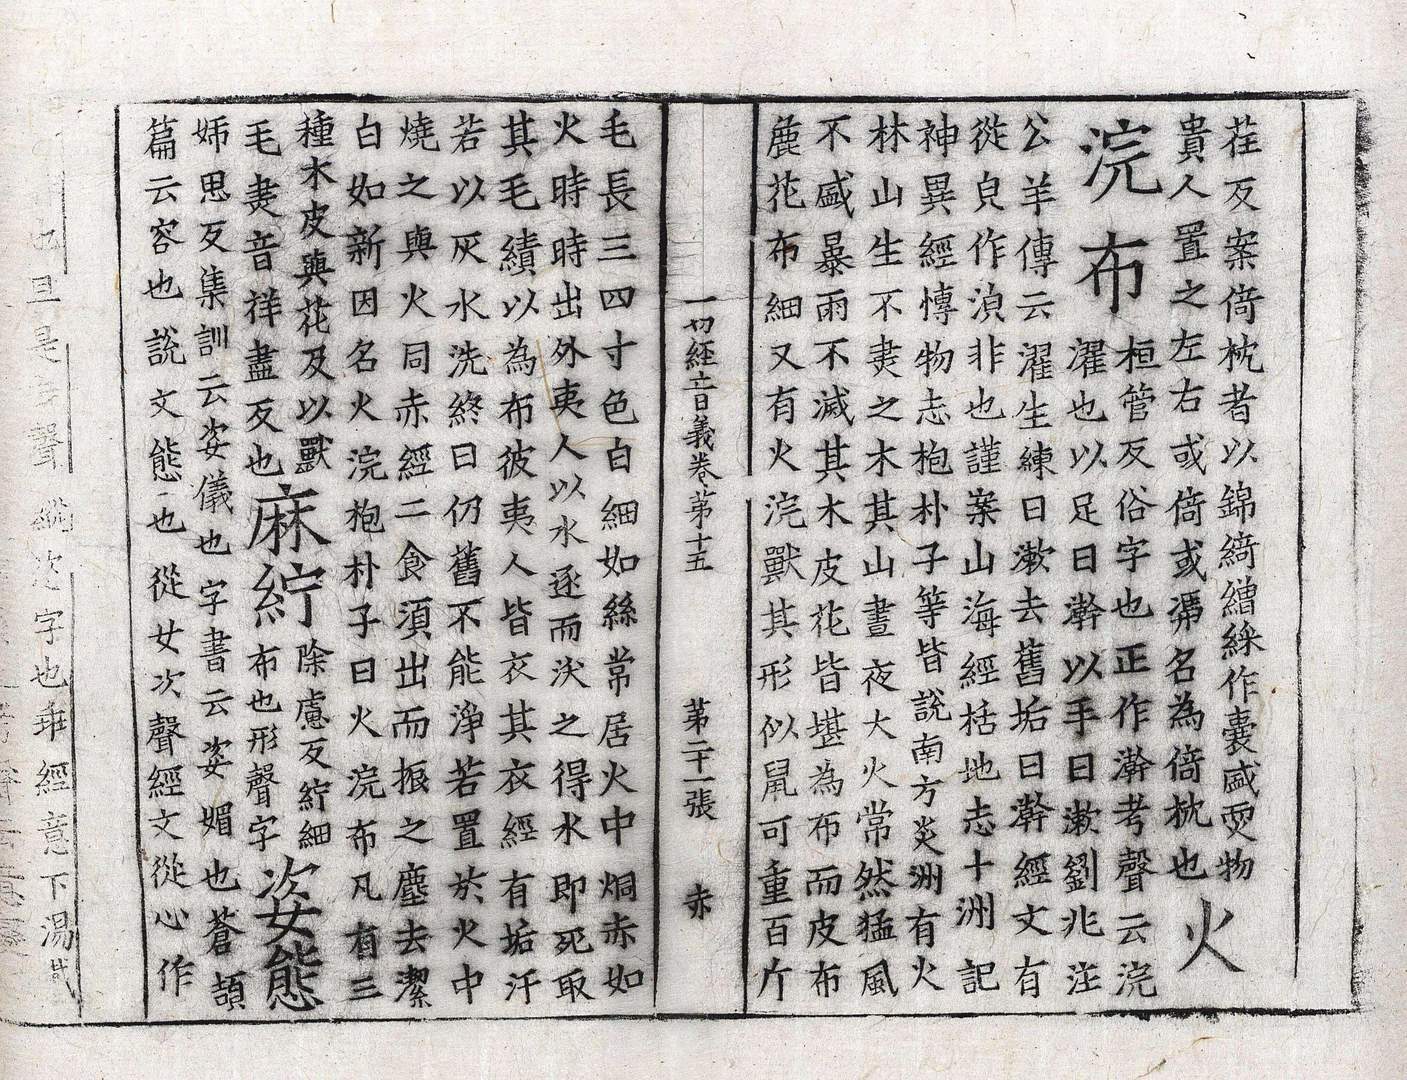 荏反案倚枕者以錦綺繒綵作囊盛耎物
貴人置之左右或倚或凴名為倚枕也火
浣布桓管反俗字也正作澣考聲云浣
濯也以足曰澣以手曰漱劉兆注
公羊傳云濯生練曰漱去舊垢曰澣經文有
從皃作浈非也謹案山海經括地志十洲記
神異經愽物志枹朴子等皆說南方炎洲有火
林山生不㶳之木其山晝夜大火常然猛風
不盛暴雨不滅其木皮花皆堪為布而皮布
麁花布細又有火浣獸其形似䑕可重百斤
一切經音義卷第十五 第二十一張 赤
毛長三四寸色白細如絲常居火中烔赤如
火時時出外夷人以水逐而沃之得水即死取
其毛績以為布彼夷人皆衣其衣經有垢汙
若以灰水洗終日仍舊不能淨若置於火中
燒之與火同赤經二食須出而振之塵去潔
白如新因名火浣枹朴子曰火浣布凡有三
種木皮與花及以獸
毛㶳音祥盡反也麻紵除慮反紵細
布也形聲字姿態
姉思反集訓云姿儀也字書云姿媚也蒼頡
篇云容也說文態也從女次聲經文從心作
字也乖經意下湯